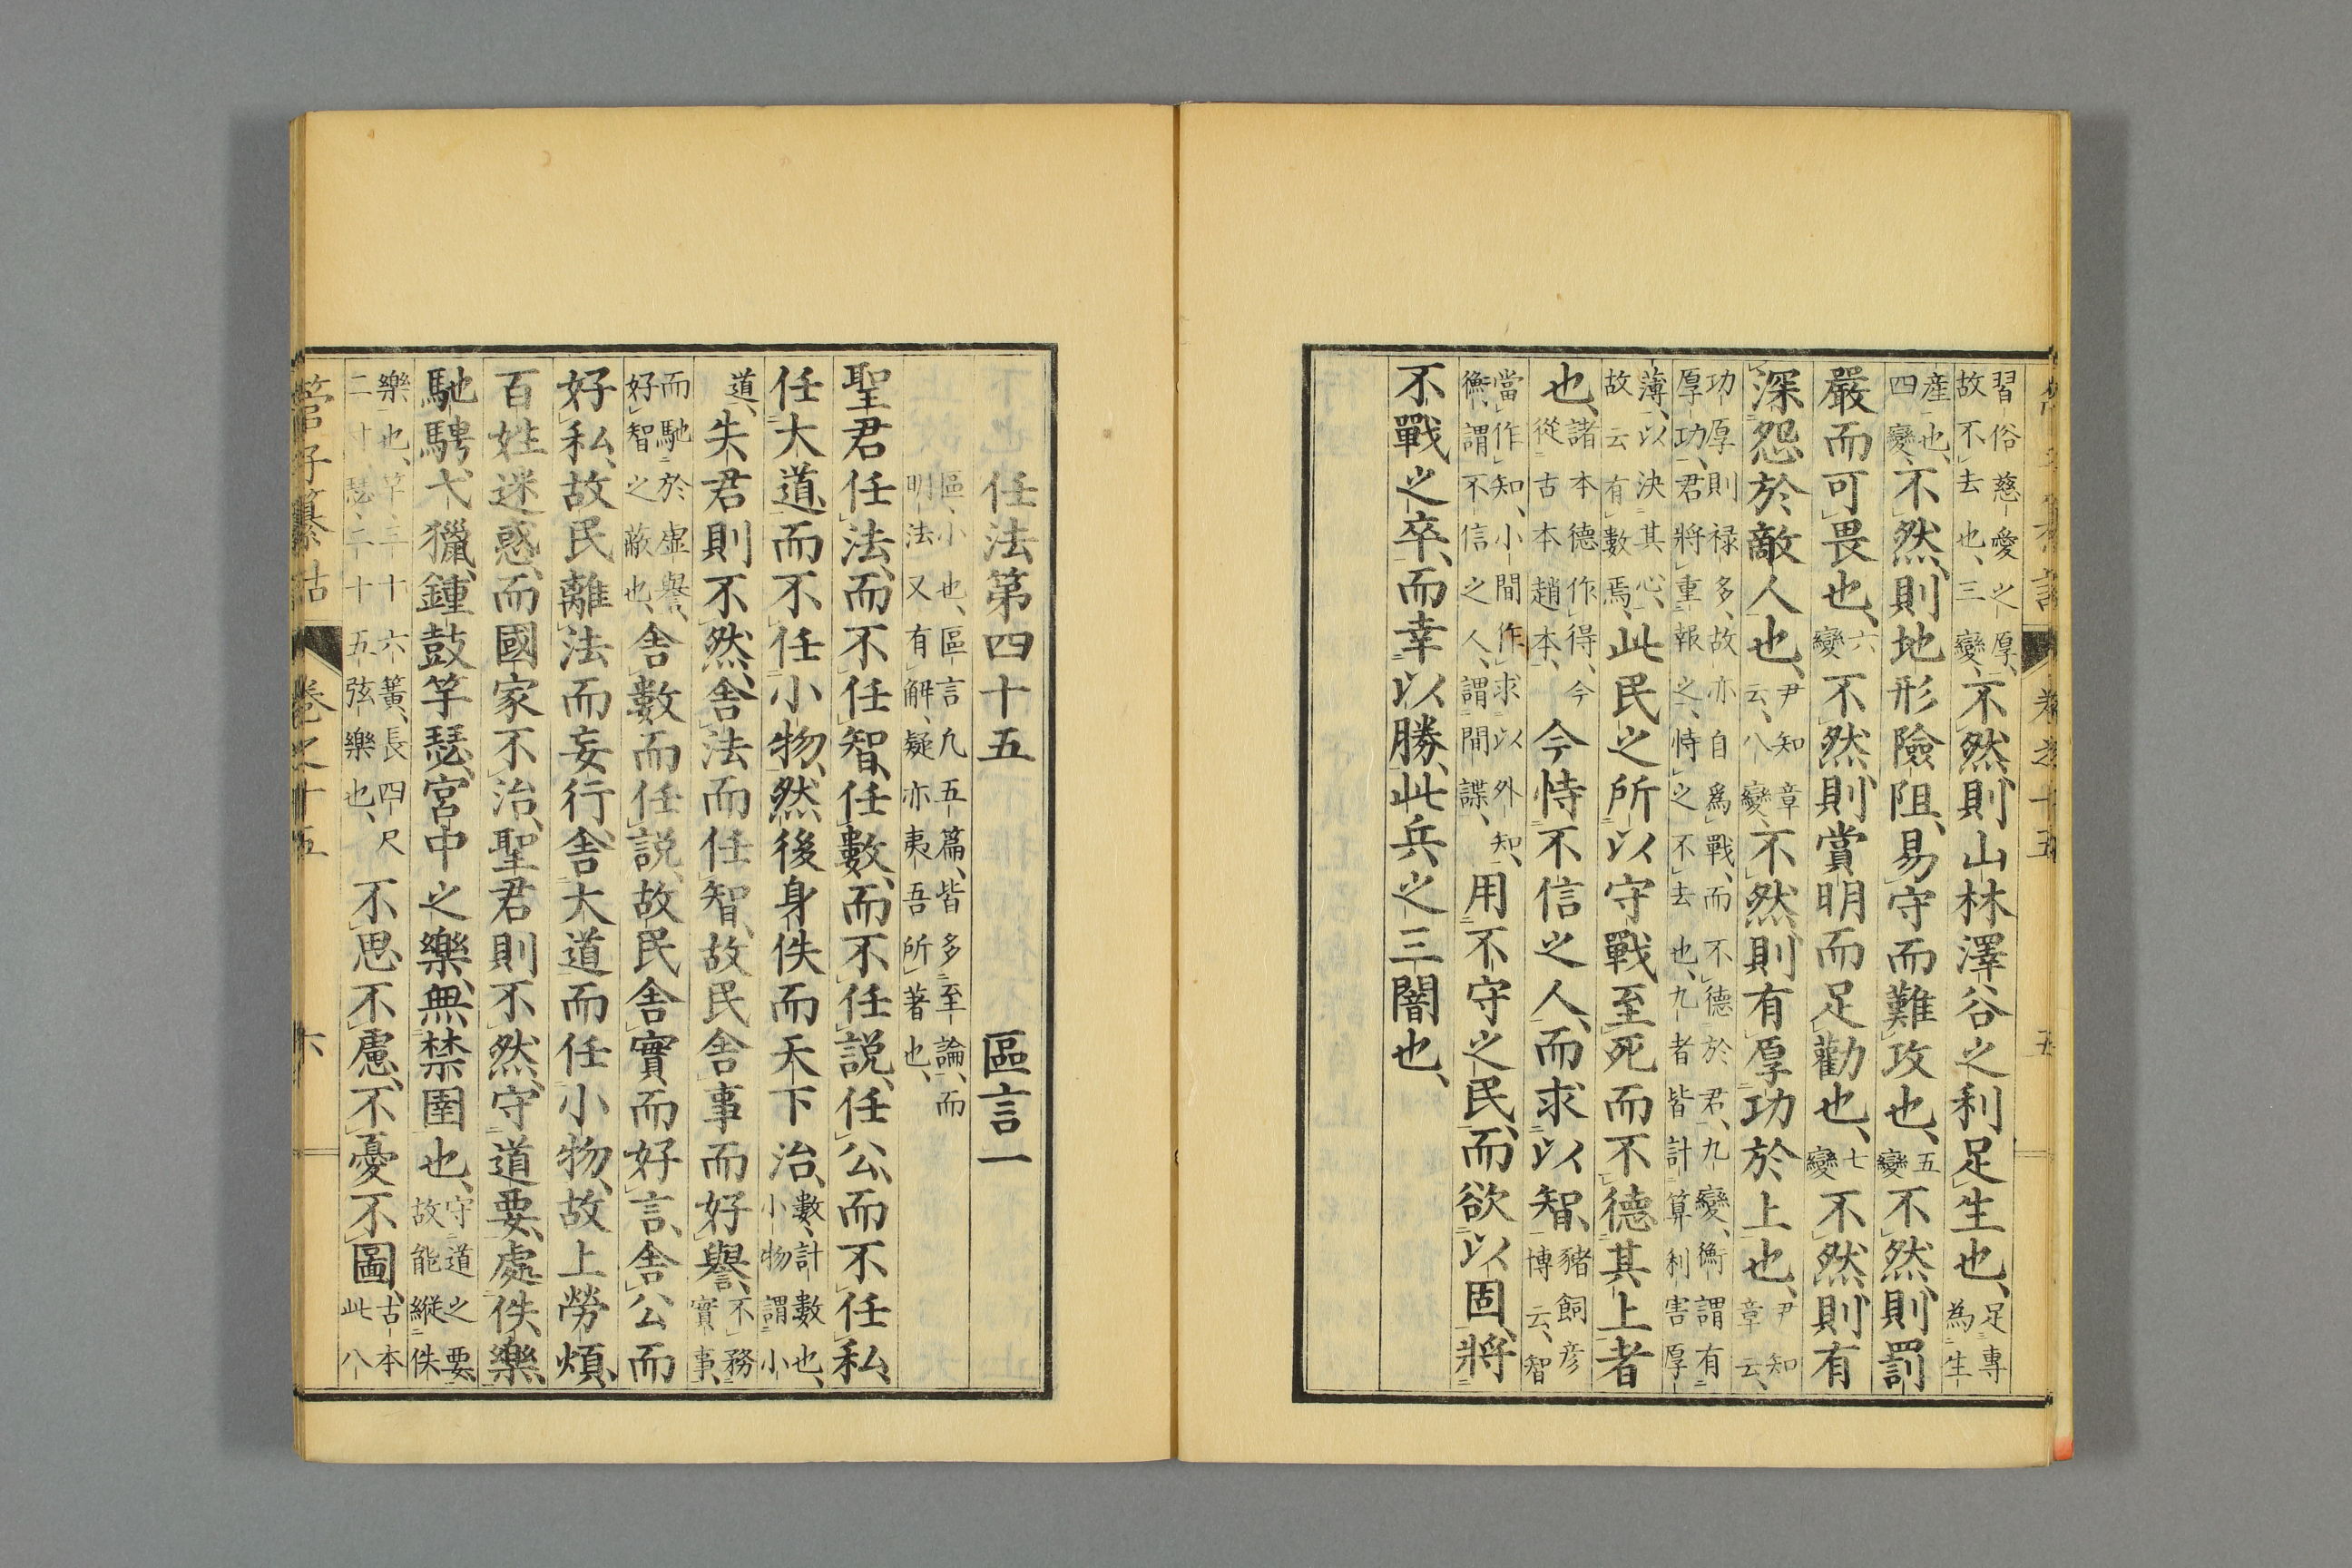 習俗慈愛之厚、故不去也、三變、不然、則山林澤谷之利足生也、足專為生
產也、四變、不然、則地形險阻、易守而難攻也、五變不然、則罰
嚴而可畏也、六變不然、則賞明而足勸也、七變不然、則有
深怨於敵人也、尹知章云、八變、不然、則有厚功於上也、尹知章云、
功厚則祿多、故亦自爲戰、而不德於君、九變、衡謂有厚功、君將重報之、恃之不去也、九者皆計算利害厚
薄、以決其心、故云有數焉、此民之所以守戰至死而不德其上者
也、諸本德作得、今從古本趙本、今恃不信之人、而求以智、豬飼彥博云、智
當作知、小問作求以外知、衡謂不信之人、謂間諜、用不守之民、而欲以固、將
不戰之卒、而幸以勝、此兵之三闇也、
任法第四十五 區言一
區、小也、區言凡五篇、皆多至論、而明法又有解、疑亦夷吾所著也、
聖君任法、而不任智、任數、而不任說、任公、而不任私、
任大道、而不任小物、然後身佚而天下治、數、計數也、小物謂小
道、失君則不然、舍法而任智、故民舍事而好譽、不務實事、
而馳於虛譽、好智之蔽也、舍數而任說、故民舍實而好言、舍公而
好私、故民離法而妄行、舍大道而任小物、故上勞煩、
百姓迷惑、而國家不治、聖君則不然、守道要、處佚樂、
馳騁弋獵、鍾鼓竽瑟、宮中之樂、無禁圉也、守道之要、故能縱佚
樂也、竽、三十六簧、長四尺二寸、瑟、二十五弦樂也、不思不慮、不憂不圖、古本此八
管子纂詁 卷之十五 六